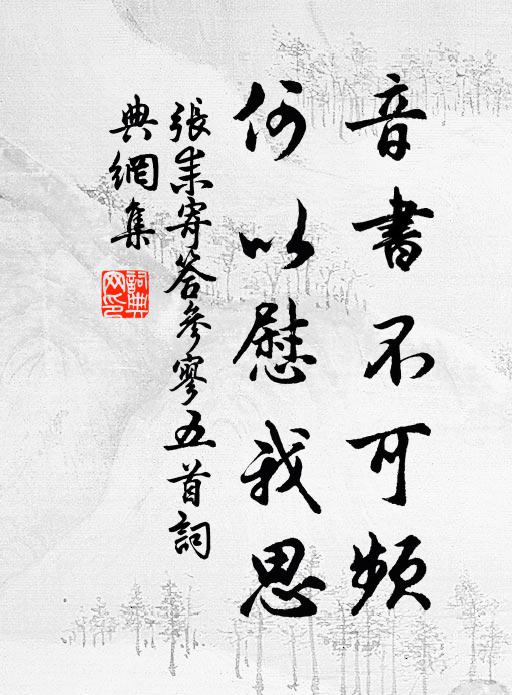 音書不可頻
何以慰我思
張耒寄答參寥五首詞
典網集
詞典網印